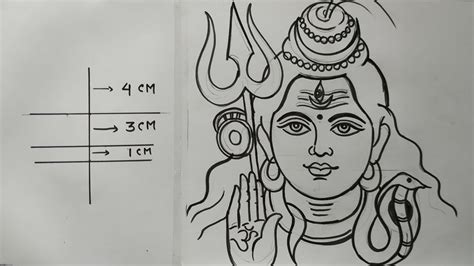 → 4 CM
→ 3 CM
→ 1 CM
ॐ